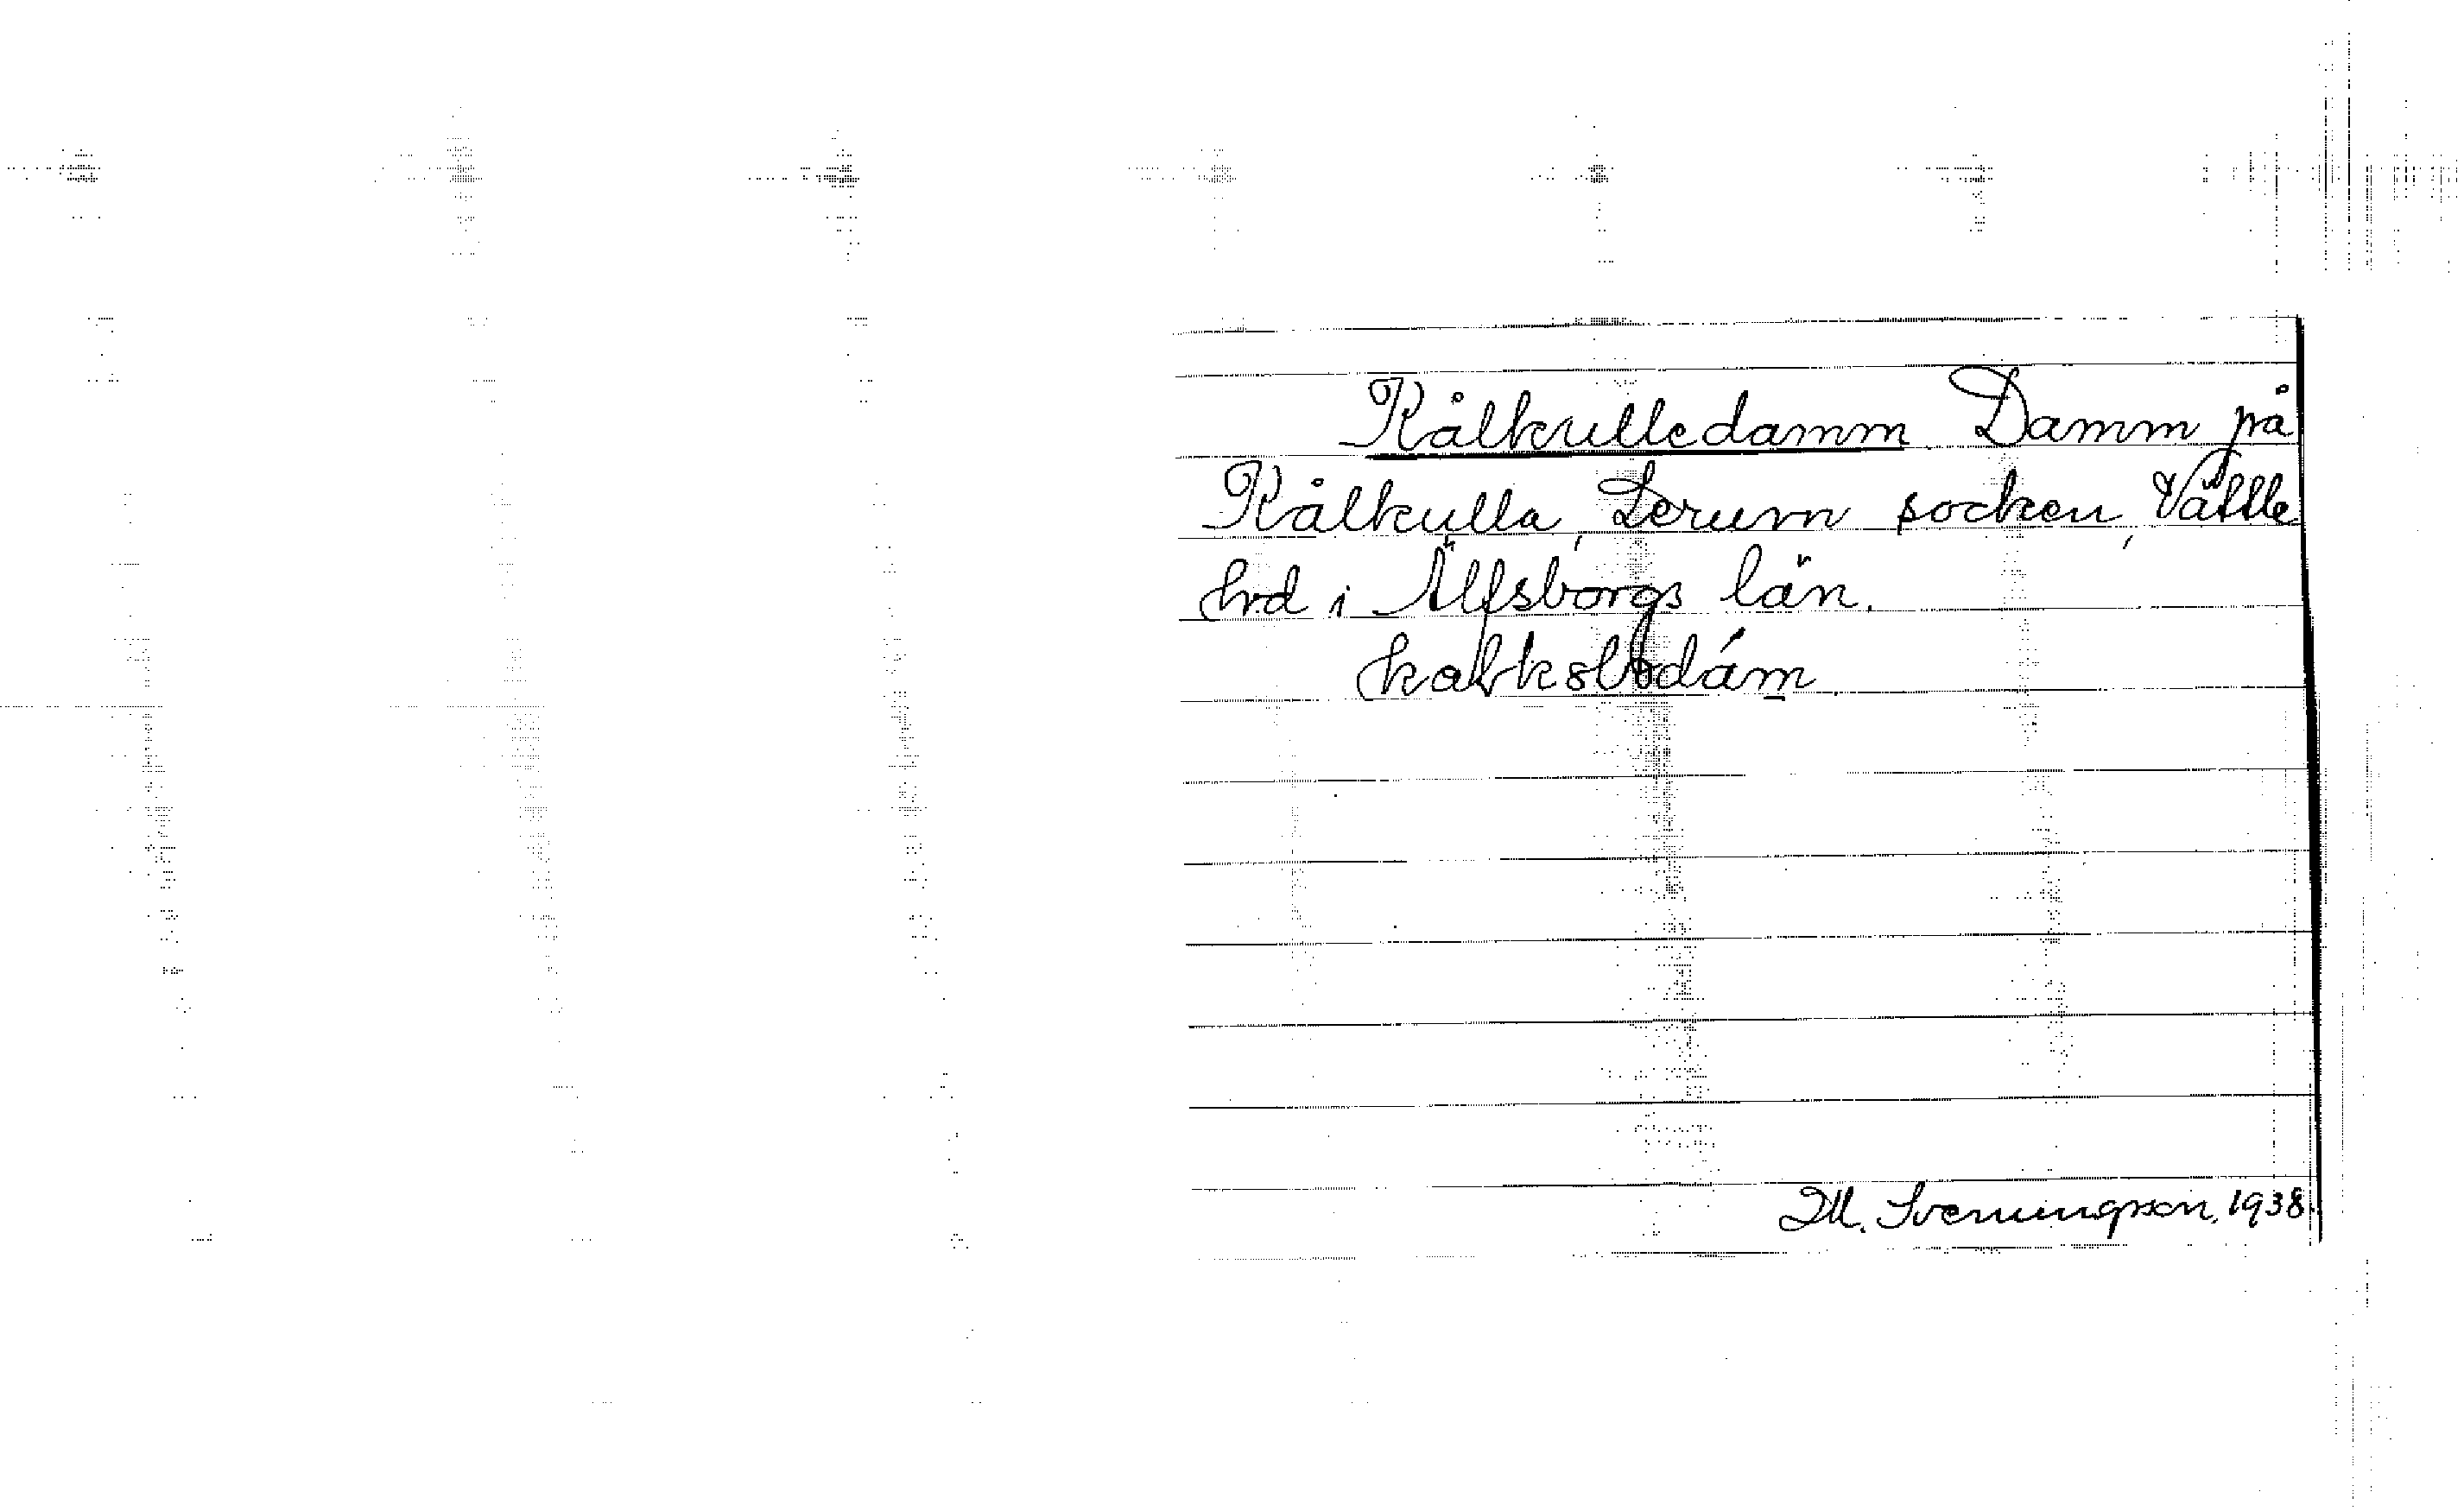 Kålkulledamm Damm på
Kålkulla, Lerum socken, Vättle
hrd i Älfsborgs län.
M. Svenungsson, 1938.